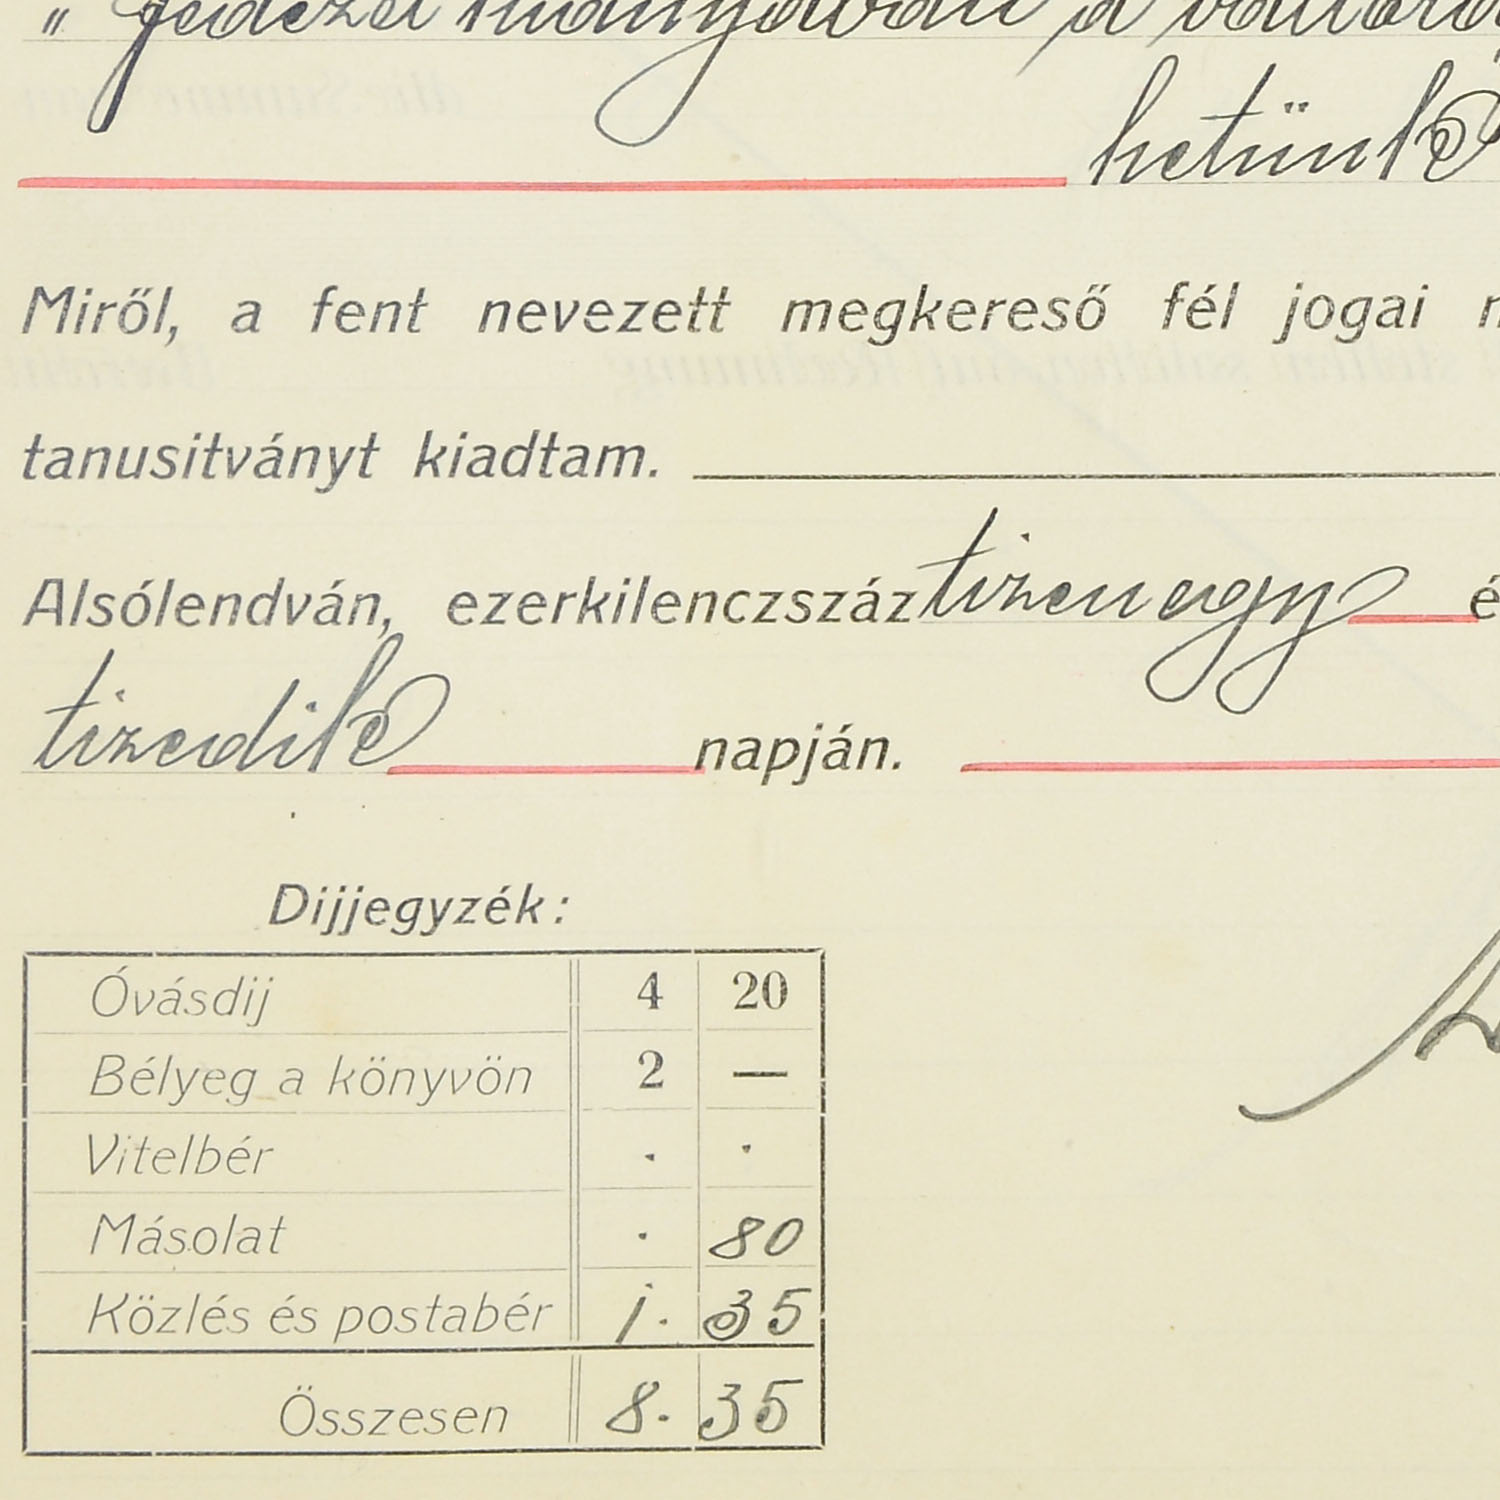 „ fedezet hiányában a
hetünk
Miről, a fent nevezett megkereső fél jogai
tanusitványt kiadtam.
Alsólendván, ezerkilenczszáz tizenegy é
tizedik napján.
Dijjegyzék:
Óvásdij 4 20
Bélyeg a könyvön 2 —
Vitelbér . .
Másolat . 80
Közlés és postabér 1. 35
Összesen 8. 35